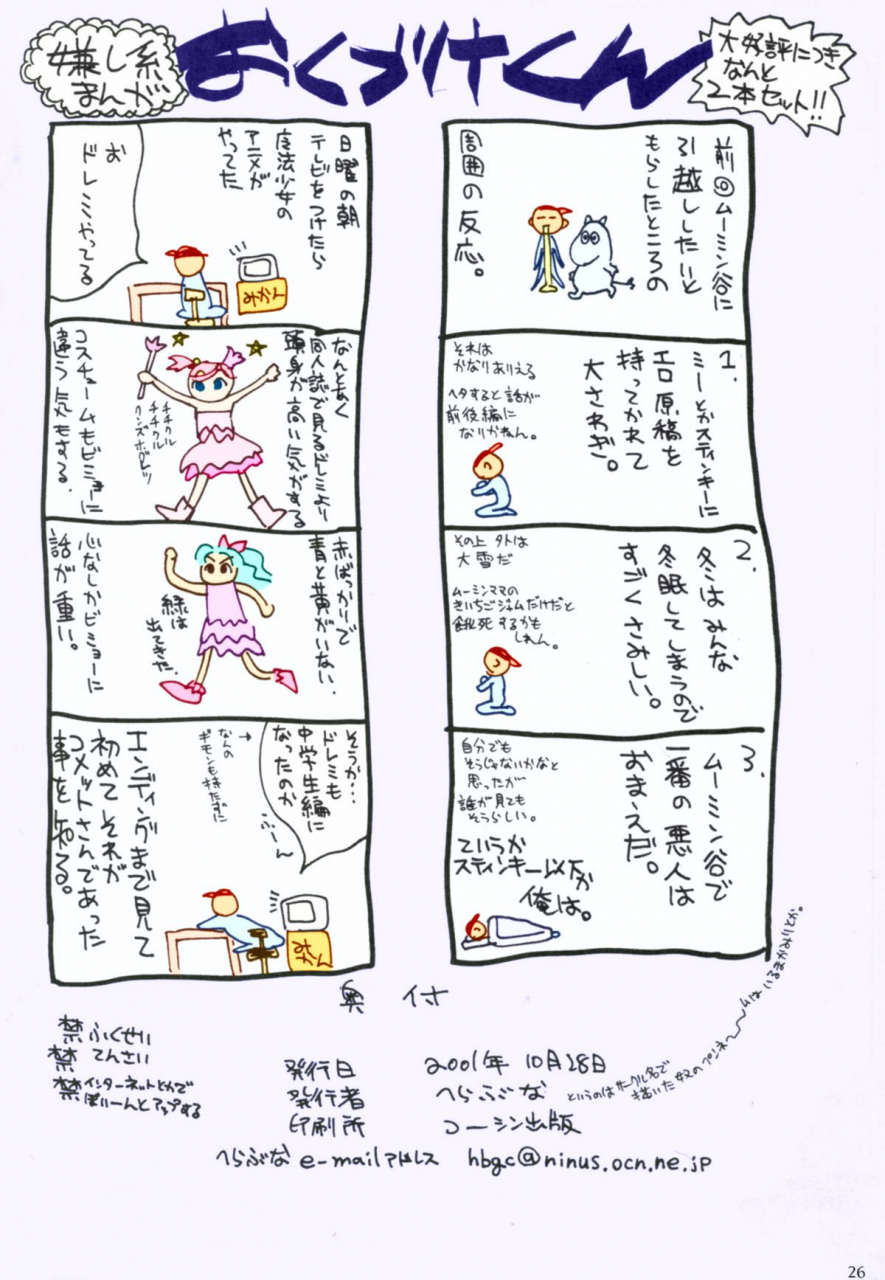 嫌し系
まんが
おくづけくん
大好評につき
なんと
2本セット!!
前回ムーミン谷に
引越ししたいと
もらしたところの
周囲の反応。
1.
ミーとかスティンキーに
エロ原稿を
持ってかれて
大さわぎ。
それは
かなりありえる
ヘタすると話が
前後編に
なりかねん。
2.
冬はみんな
冬眠してしまうので
すごくさみしい。
その上外は
大雪だ
ムーミンママの
きいちごジャムだけだと
餓死するかも
しれん。
3.
ムーミン谷で
一番の悪人は
おまえだ。
自分でも
そうじゃないかなと
思ったが
誰が見ても
そうらしい。
ていうか
スティンキー以下か
俺は。
日曜の朝
テレビをつけたら
魔法少女の
アニメが
やってた
お
ドレミやってる
みかん
なんとなく
同人誌で見るドレミより
頭身が高い気がする
チチクル
チチクル
コスチュームもビミョーに
違う気もする.
赤ばっかりで
青と黄がいない.
緑は
出てきた.
心なしかビミョーに
話が重い。
そうか…
ドレミも
中学生編に
なったのか
ふーん
→
なんの
ギモンも持たずに
エンディングまで見て
初めてそれが
コメットさんであった
事を知る。
みかん
奥付
禁ふくせい
禁てんさい
禁インターネットとかで
ばいーんとアップする
発行日 2001年10月28日
発行者 へらぶな
というのはサークル名で
描いた奴のペンネ〜ムはいるまかみりとか。
印刷所 コーシン出版
へらぶな e-mailアドレス hbgc@ninus.ocn.ne.jp
26